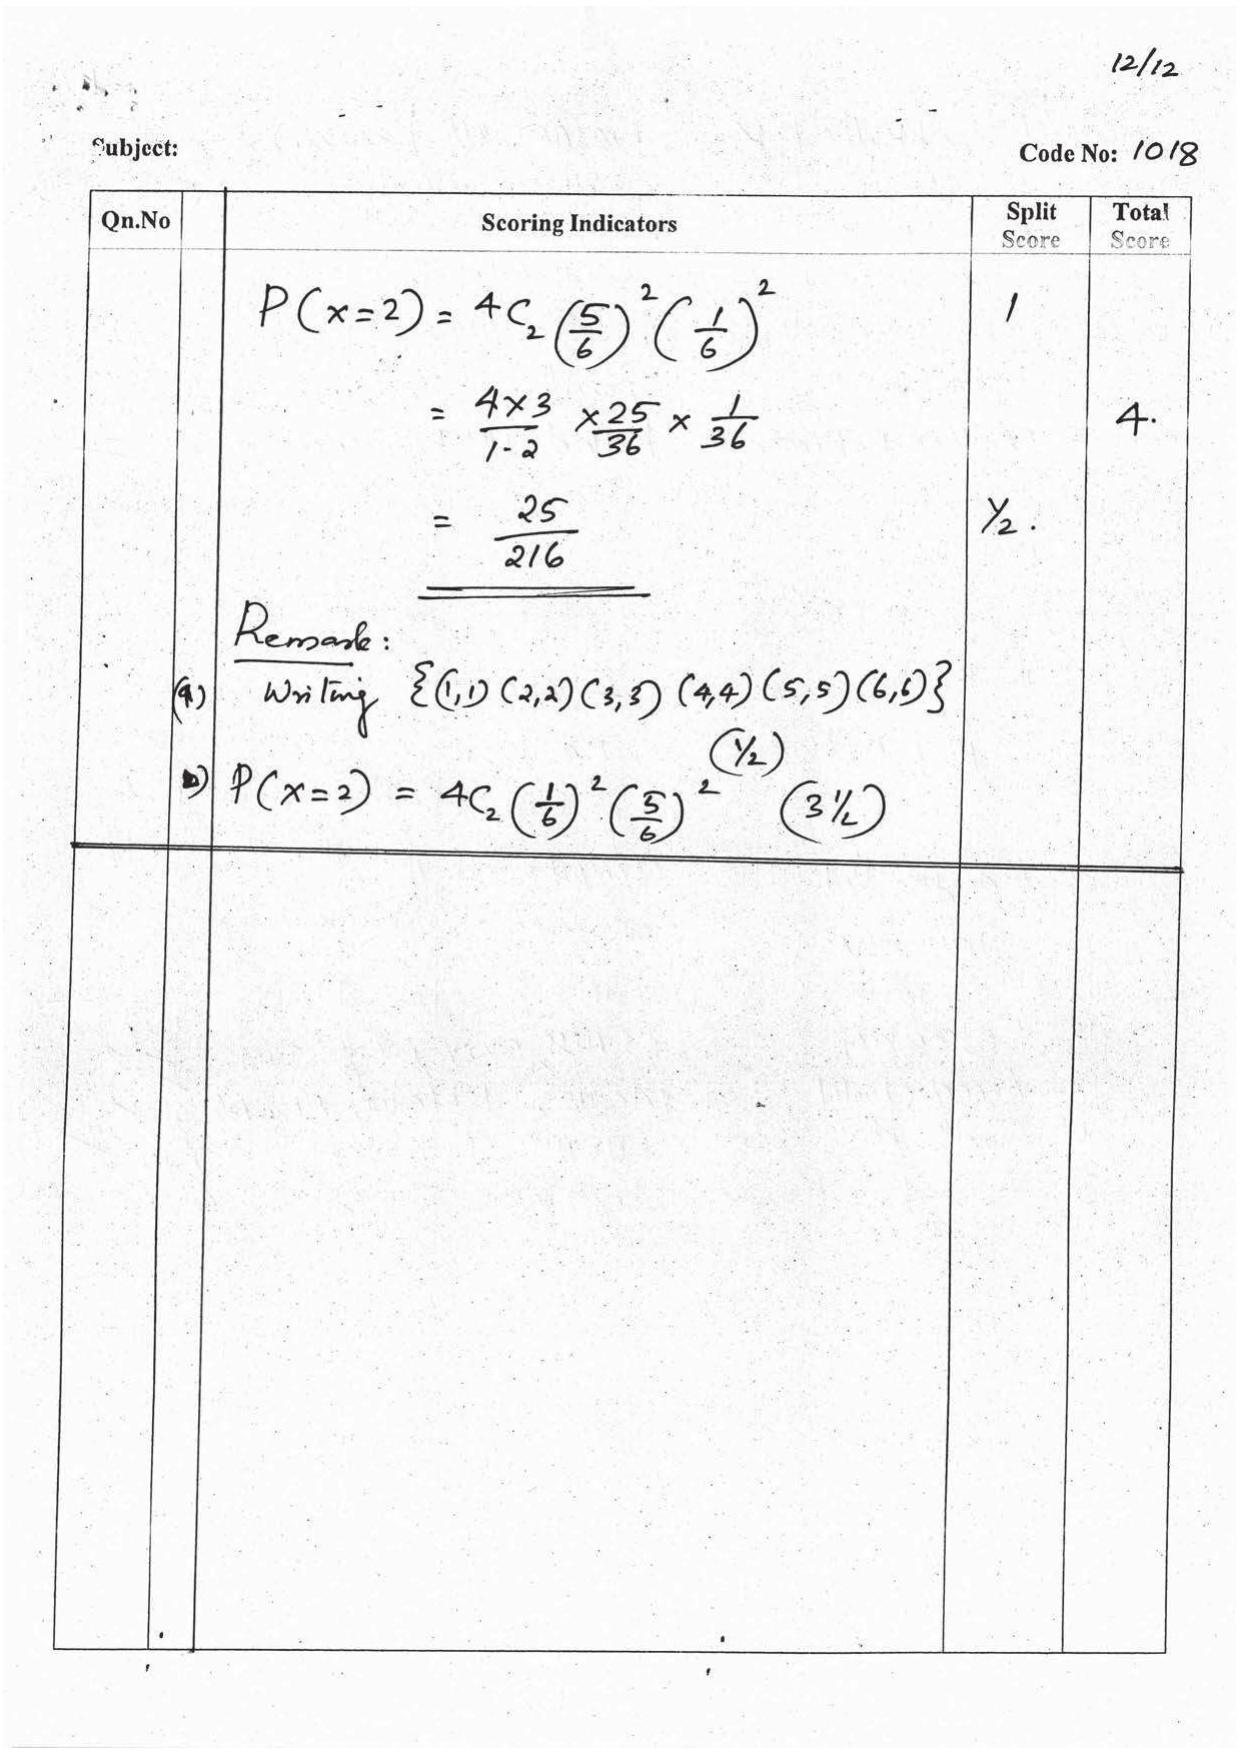 12/12
Subject:
Code No: 1018
Qn.No Scoring Indicators Split Score Total Score
P(x=2) = 4C₂ (5/6)² (1/6)² 1
= 4×3/1·2 × 25/36 × 1/36 4.
= 25/216 ½.
Remark:
(a) Writing {(1,1) (2,2) (3,3) (4,4) (5,5) (6,6)}
(½)
b) P(x=2) = 4C₂ (1/6)² (5/6)² (3½)